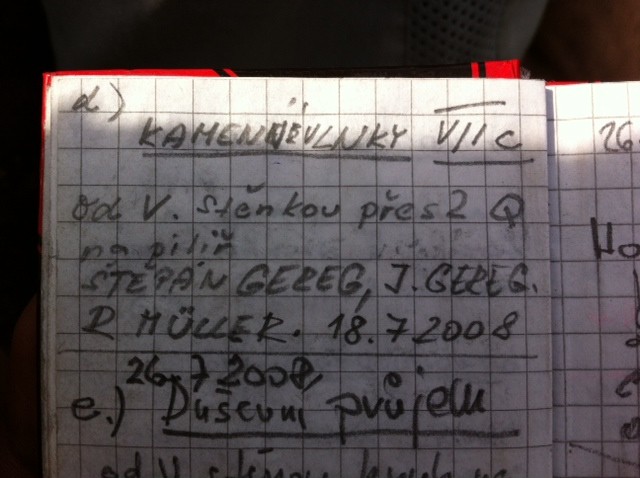 d)
KAMENNÉ VLNKY VIIc
od V. stěnkou přes 2 Q
na pilíř
ŠTĚPÁN GEREG, J. GEREG.
R MÜLLER. 18.7 2008
26.7 2008
e.) Duševní průjem
od V stěnou
26.